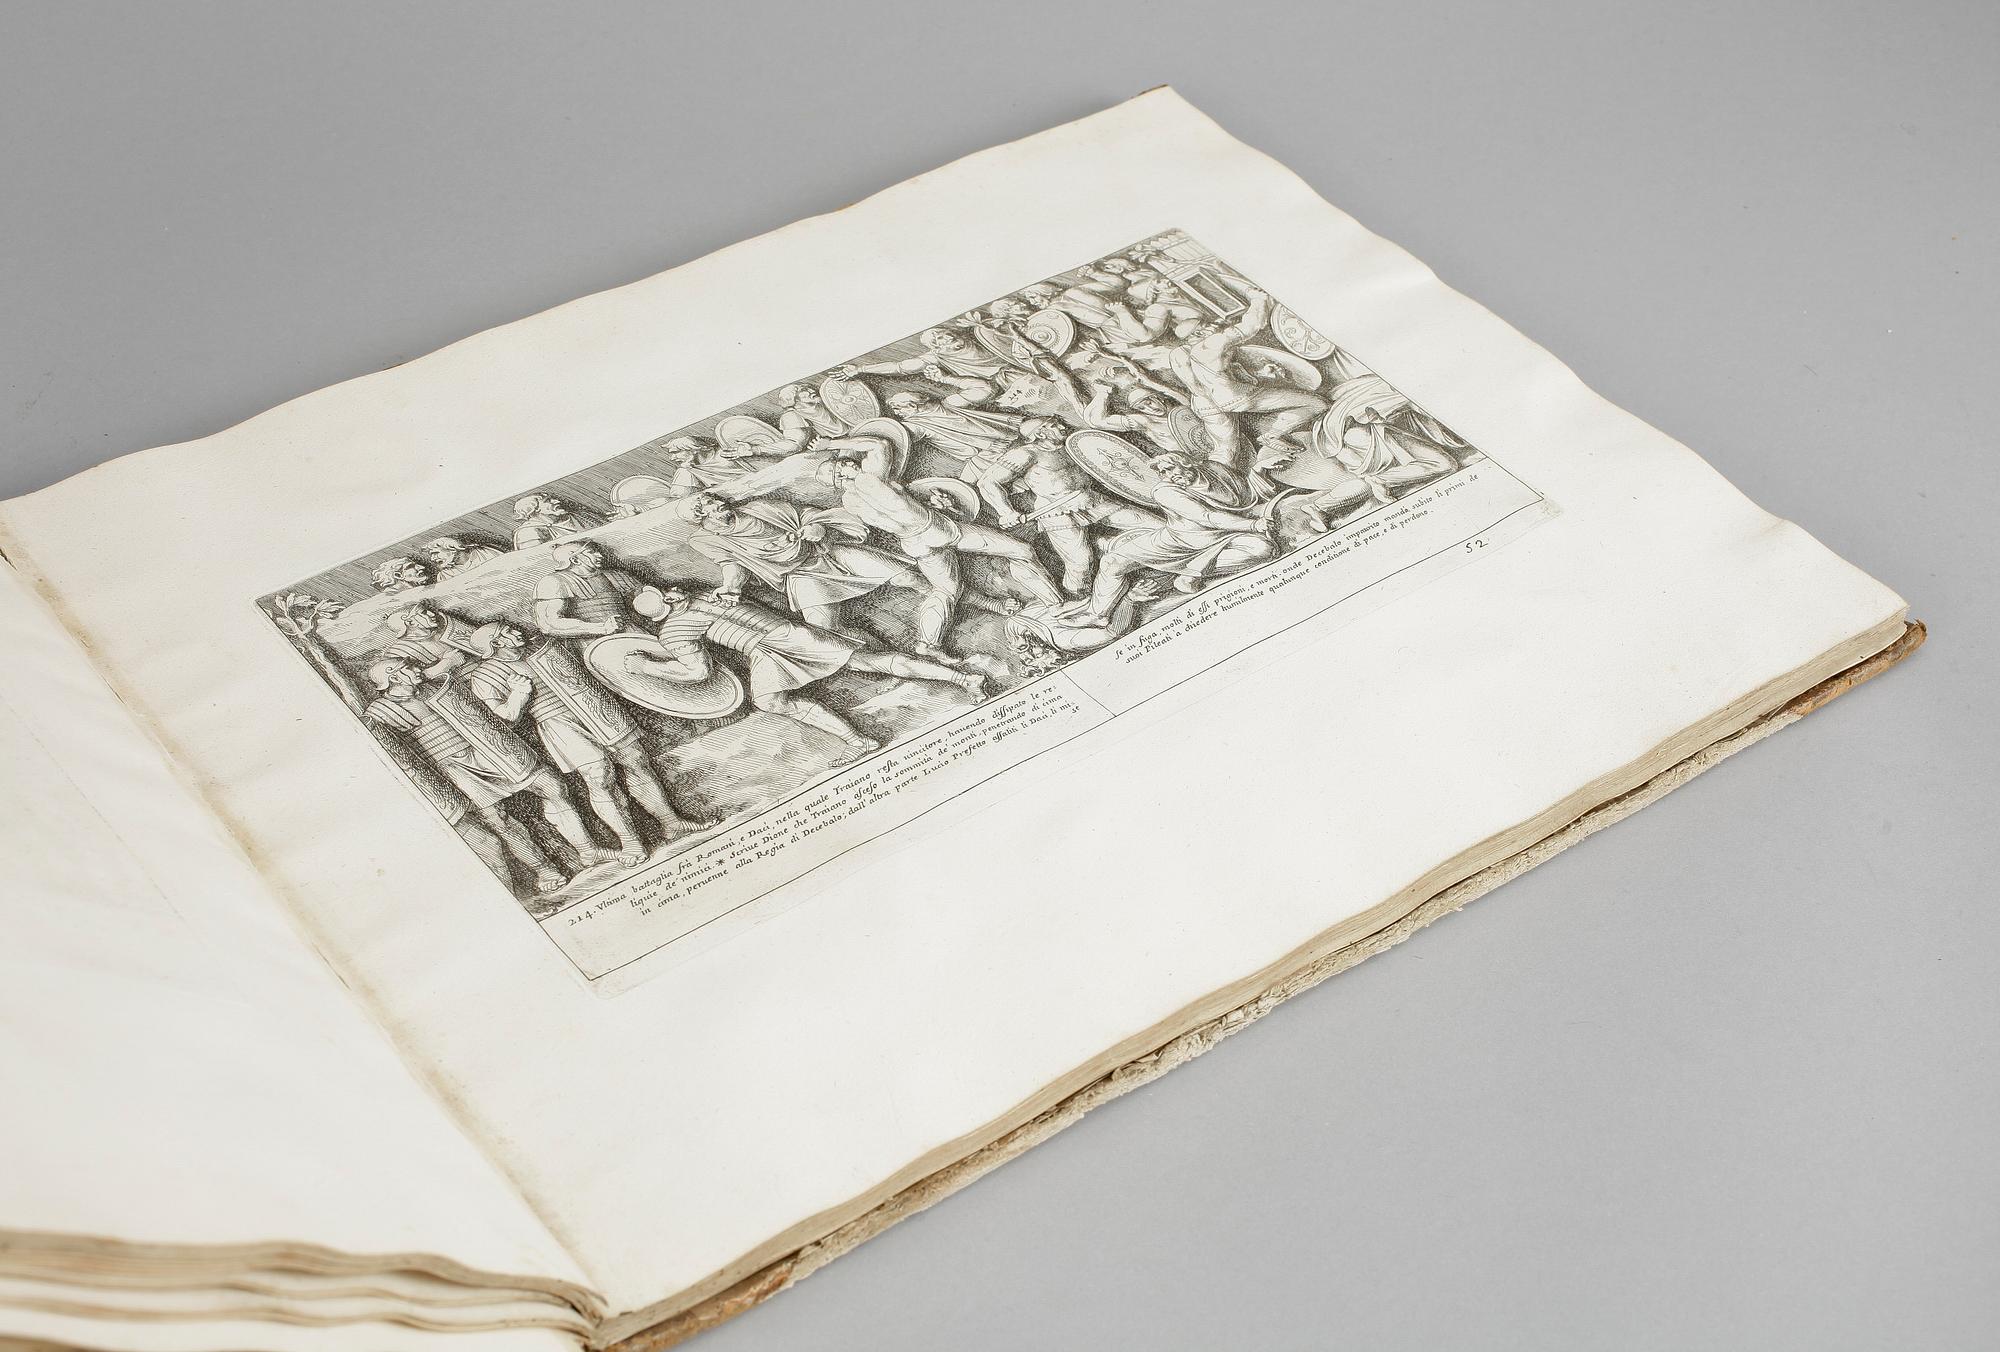 214
214. Vltima battaglia frà Romani, e Daci, nella quale Traiano resta uincitore, hauendo dissipato le re:
liquie de' nimici * Scriue Dione che Traiano asceso la sommità de' monti, penetrando di cima
in cima, peruenne alla Regia di Decebalo; dall' altra parte Lucio Prefetto assaliti li Daci, li mi:
se
se in fuga, molti di essi prigioni, e morti, onde Decebalo impaurito manda subito li primi de
suoi Pileati a chiedere humilmente qualunque conditione di pace, e di perdono.
52.